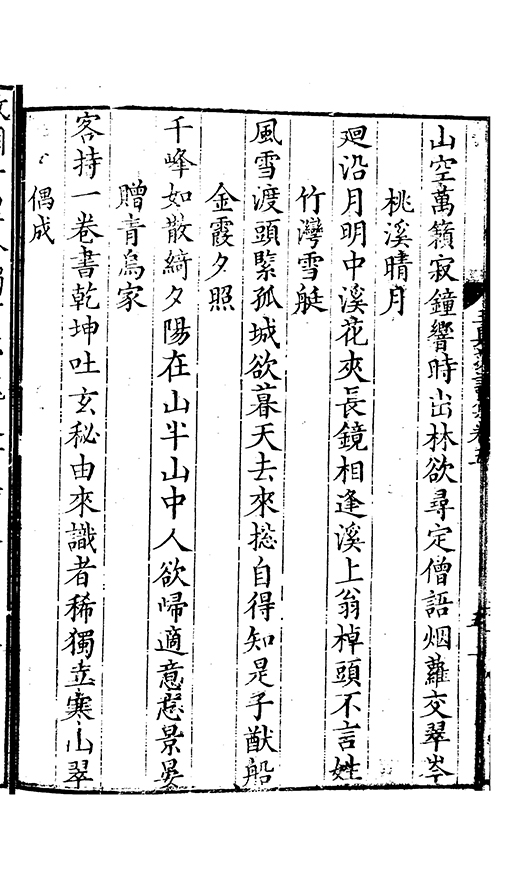 山空萬籟寂鐘響時出林欲尋定僧語烟蘿交翠岑
桃溪晴月
廻沿月明中溪花夾長鏡相逢溪上翁棹頭不言姓
竹灣雪艇
風雪渡頭緊孤城欲暮天去來摠自得知是子猷船
金霞夕照
千峰如散綺夕陽在山半山中人欲歸適意惹景晏
贈青烏家
客持一卷書乾坤吐玄秘由來識者稀獨立寒山翠
偶成